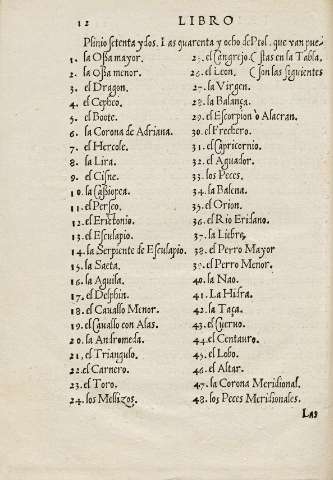 12 LIBRO
Plinio setenta y dos. Las quarenta y ocho de Ptol. que van pue
1. la Ossa mayor.
2. la Ossa menor.
3. el Dragon.
4. el Cepheo.
5. el Boote.
6. la Corona de Adriana.
7. el Hercole.
8. la Lira.
9. el Cisne.
10. la Cassiopea.
11. el Perseo.
12. el Erictonio.
13. el Esculapio.
14. la Serpiente de Esculapio.
15. la Saeta.
16. la Aguila.
17. el Delphin.
18. el Cauallo Menor.
19. el Cauallo con Alas.
20. la Andromeda.
21. el Triangulo.
22. el Carnero.
23. el Toro.
24. los Mellizos.
25. el Cangrejo. (stas en la Tabla,
26. el Leon. (son las siguientes
27. la Virgen.
28. la Balança.
29. el Escorpion ò Alacran.
30. el Frechero.
31. el Capricornio.
32. el Aguador.
33. los Peces.
34. la Balena.
35. el Orion.
36. el Rio Eridano.
37. la Liebre.
38. el Perro Mayor
39. el Perro Menor.
40. la Nao.
41. La Hidra.
42. la Taça.
43. el Cueruo.
44. el Centauro.
45. el Lobo.
46. el Altar.
47. la Corona Meridional.
48. los Peces Meridionales.
Las